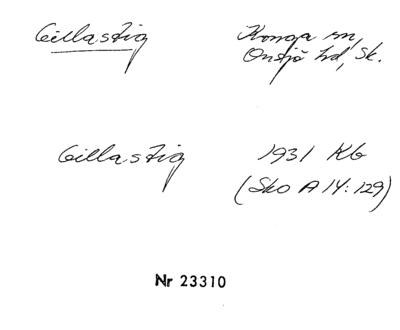 Gillastig
Konga sn,
Onsjö hd, Sk.
Gillastig
1931 KG
(Sko A 14:129)
Nr 23310